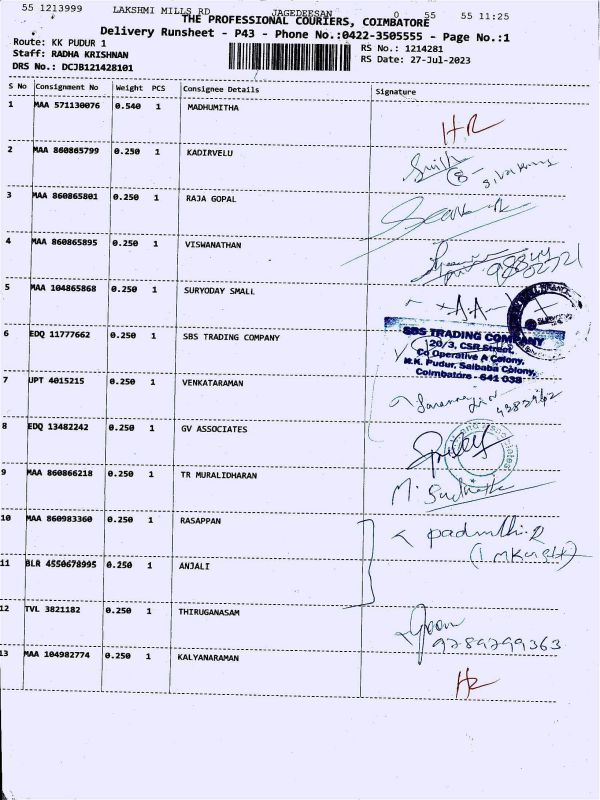 55 1213999 LAKSHMI MILLS RD JAGEDEESAN 0 55 55 11:25
THE PROFESSIONAL COURIERS, COIMBATORE
Delivery Runsheet - P43 - Phone No.:0422-3505555 - Page No.:1
Route: KK PUDUR 1
RS No.: 1214281
Staff: RADHA KRISHNAN
RS Date: 27-Jul-2023
DRS No.: DCJB121428101
S No Consignment No Weight PCS Consignee Details Signature
1 MAA 571130076 0.540 1 MADHUMITHA
H.R
2 MAA 860865799 0.250 1 KADIRVELU
3 MAA 860865801 0.250 1 RAJA GOPAL
4 MAA 860865895 0.250 1 VISWANATHAN
5 MAA 104865868 0.250 1 SURYODAY SMALL
6 EDQ 11777662 0.250 1 SBS TRADING COMPANY
SBS TRADING COMPANY
20/3, CSR Street,
Co Operative A Colony,
K.K. Pudur, Saibaba Colony,
Coimbatore - 641 038
7 UPT 4015215 0.250 1 VENKATARAMAN
8 EDQ 13482242 0.250 1 GV ASSOCIATES
9 MAA 860866218 0.250 1 TR MURALIDHARAN
10 MAA 860983360 0.250 1 RASAPPAN
11 BLR 4550678995 0.250 1 ANJALI
12 TVL 3821182 0.250 1 THIRUGANASAM
9789799363
13 MAA 104982774 0.250 1 KALYANARAMAN
HR